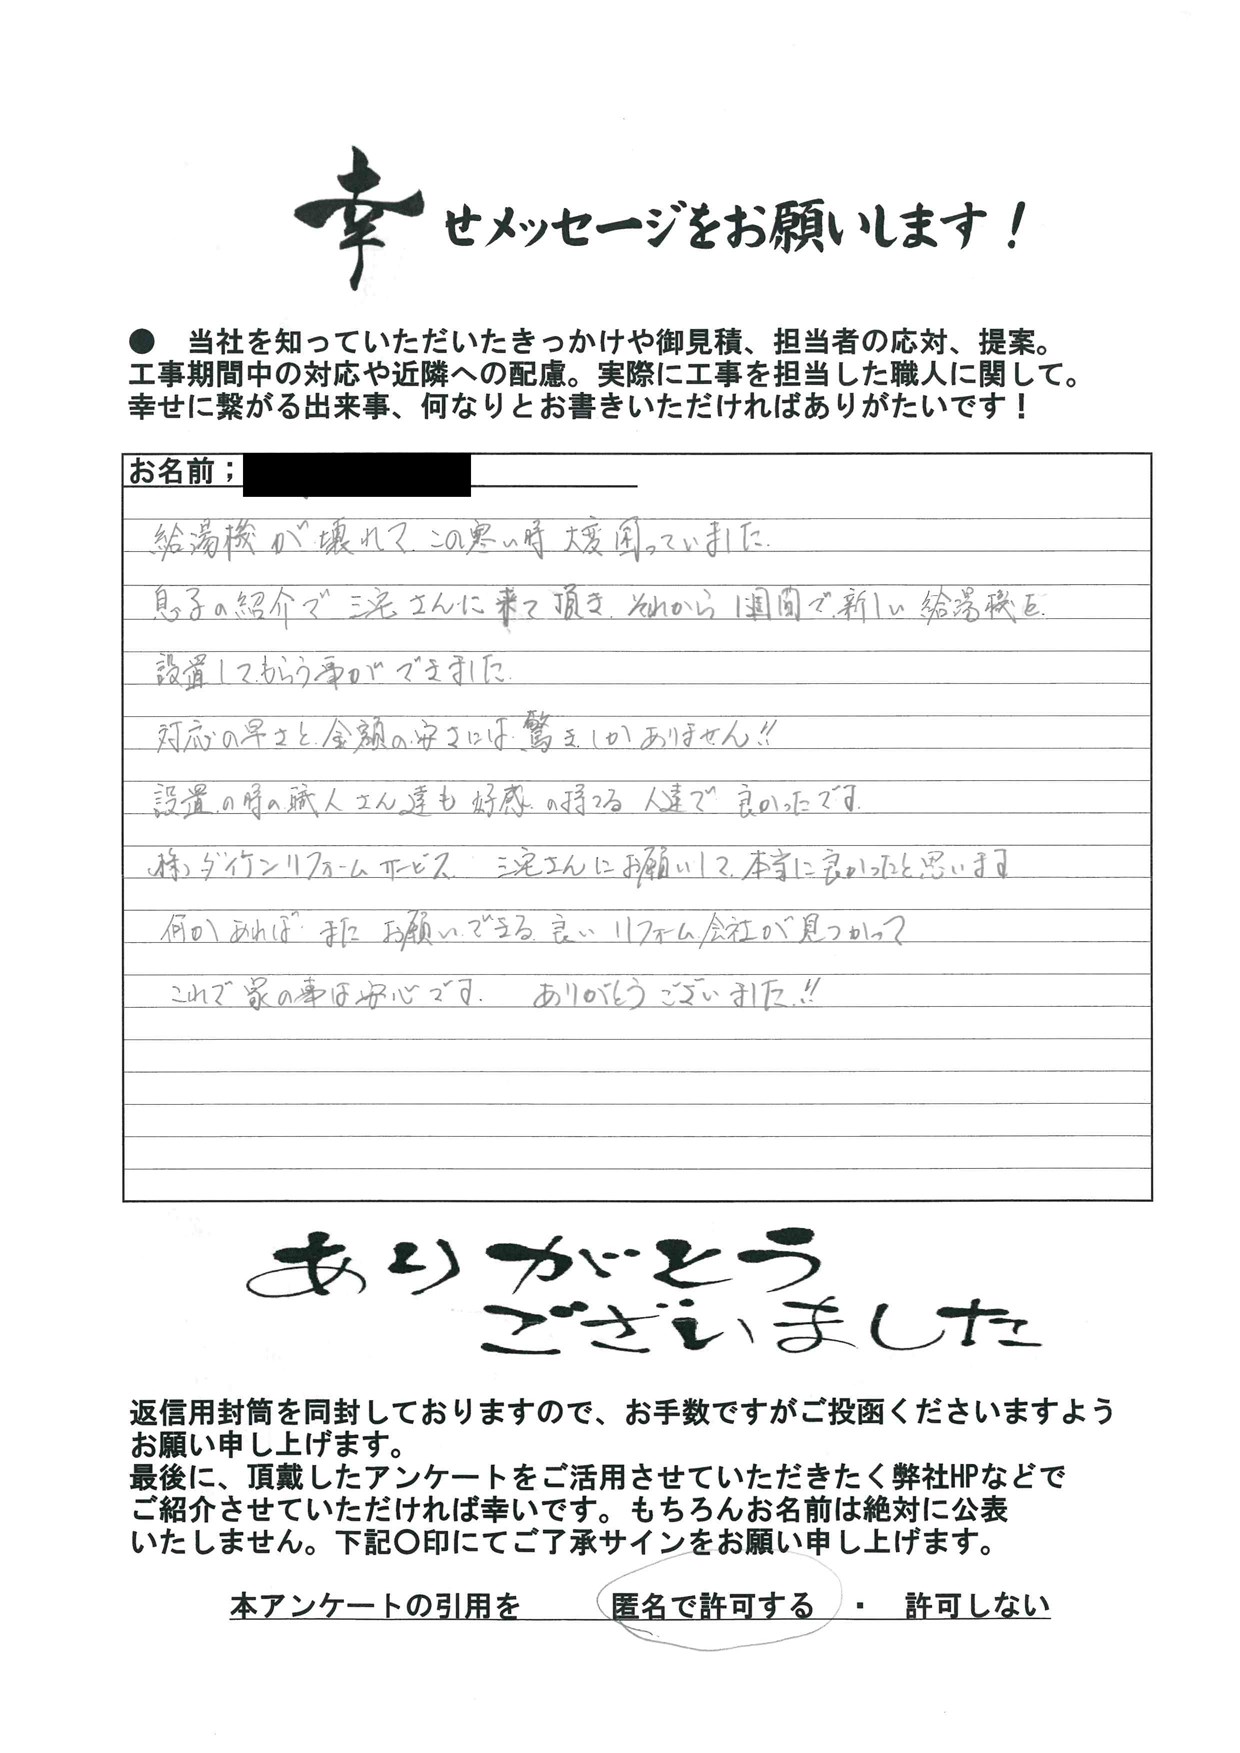 幸せメッセージをお願いします！
● 当社を知っていただいたきっかけや御見積、担当者の応対、提案。
工事期間中の対応や近隣への配慮。実際に工事を担当した職人に関して。
幸せに繋がる出来事、何なりとお書きいただければありがたいです！
お名前；
給湯機が壊れて、この寒い時 大変困っていました。
息子の紹介で 三宅さんに来て頂き、それから1週間で新しい給湯機を
設置してもらう事ができました。
対応の早さと金額の安さには驚きしかありません!!
設置の時の職人さん達も好感の持てる人達で良かったです。
(株)ダイケンリフォームサービス 三宅さんにお願いして本当に良かったと思います
何かあればまたお願いできる良いリフォーム会社が見つかって
これで家の事は安心です。 ありがとうございました!!
ありがとう
ございました
返信用封筒を同封しておりますので、お手数ですがご投函くださいますよう
お願い申し上げます。
最後に、頂戴したアンケートをご活用させていただきたく弊社HPなどで
ご紹介させていただければ幸いです。もちろんお名前は絶対に公表
いたしません。下記〇印にてご了承サインをお願い申し上げます。
本アンケートの引用を 匿名で許可する ・ 許可しない